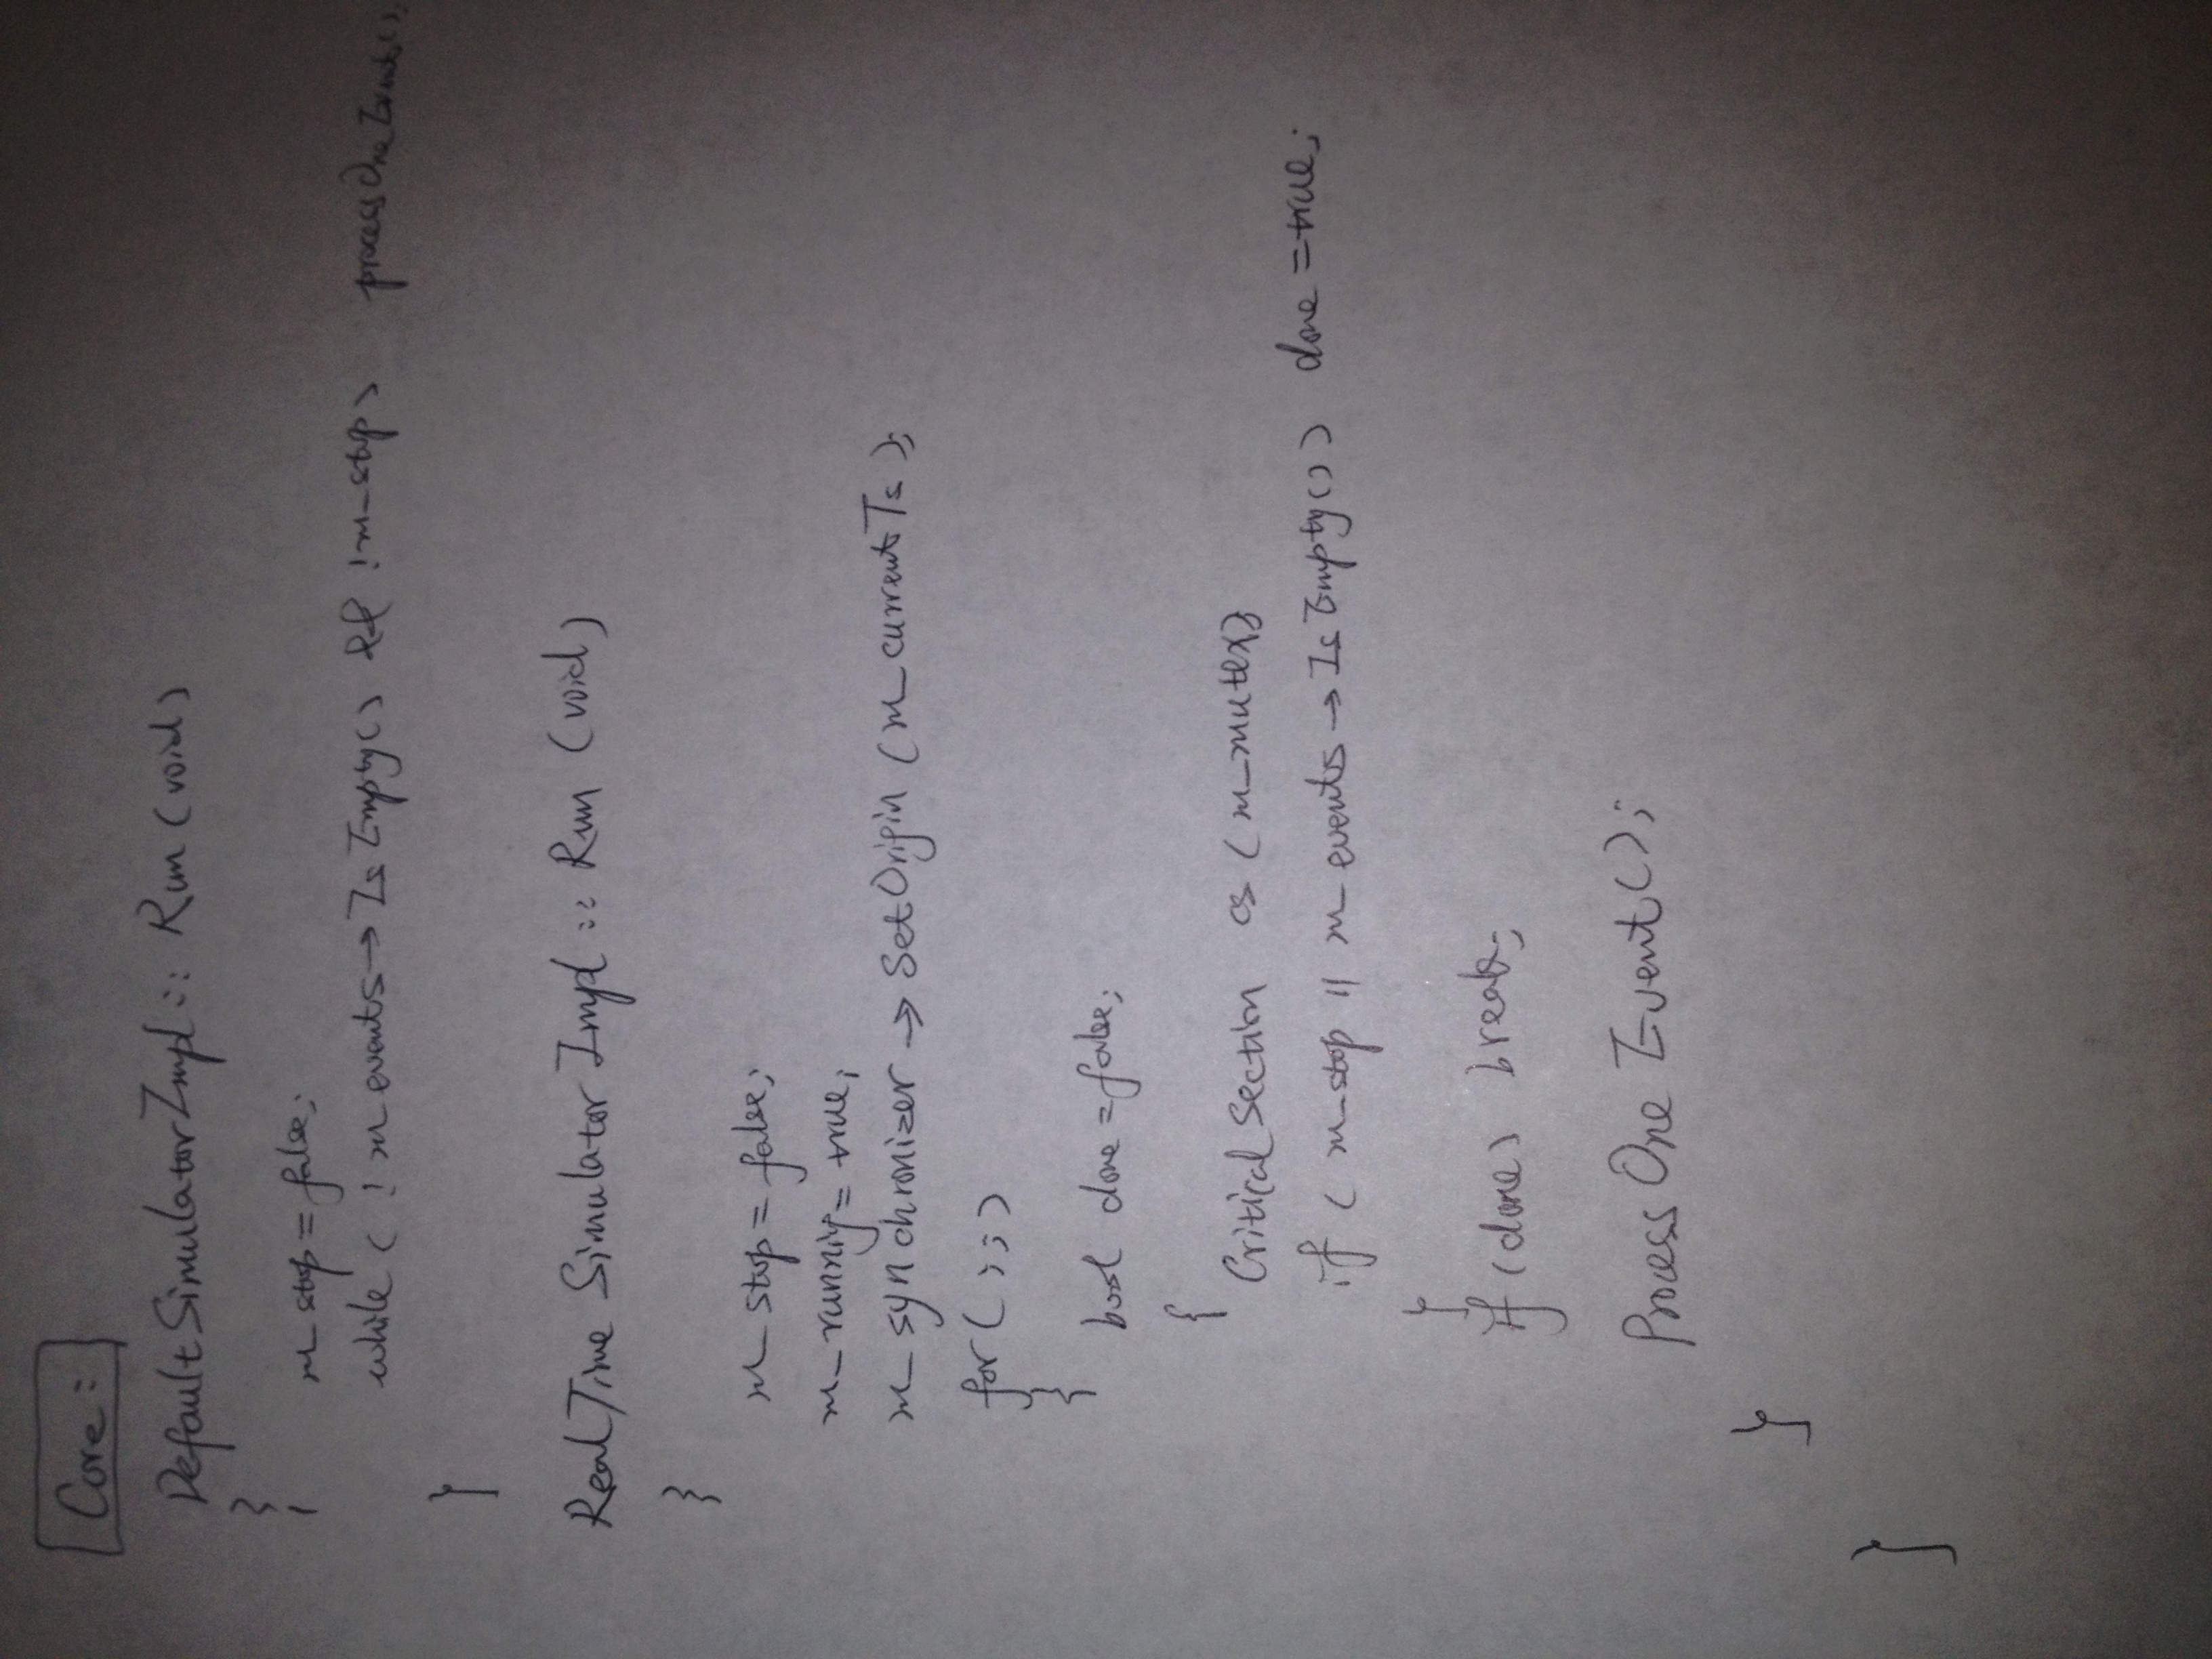 Core:
DefaultSimulatorImpl:: Run (void)
{
m_stop = false;
while ( ! m_events → IsEmpty() && !m_stop) processOneEvent();
}
RealTimeSimulatorImpl:: Run (void)
{
m_stop = false;
m_running = true;
m_synchronizer → SetOrigin (m_currentTs);
for( ;;)
{
bool done = false;
{
CriticalSection cs (m_mutex);
if ( m_stop || m_events → IsEmpty()) done = true;
}
if (done) break;
ProcessOneEvent();
}
}